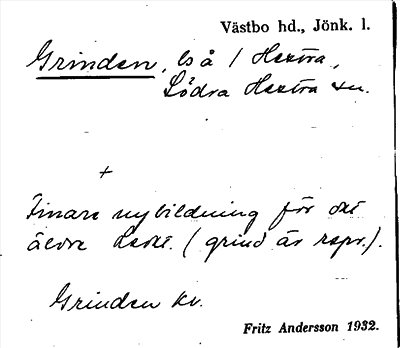 Västbo hd., Jönk. l.
Grinden, ls å 1 Hestra,
Södra Hestra sn.
+
Finare nybildning för det
äldre Ledet. (grind är rspr.).
Grinden kv.
Fritz Andersson 1932.